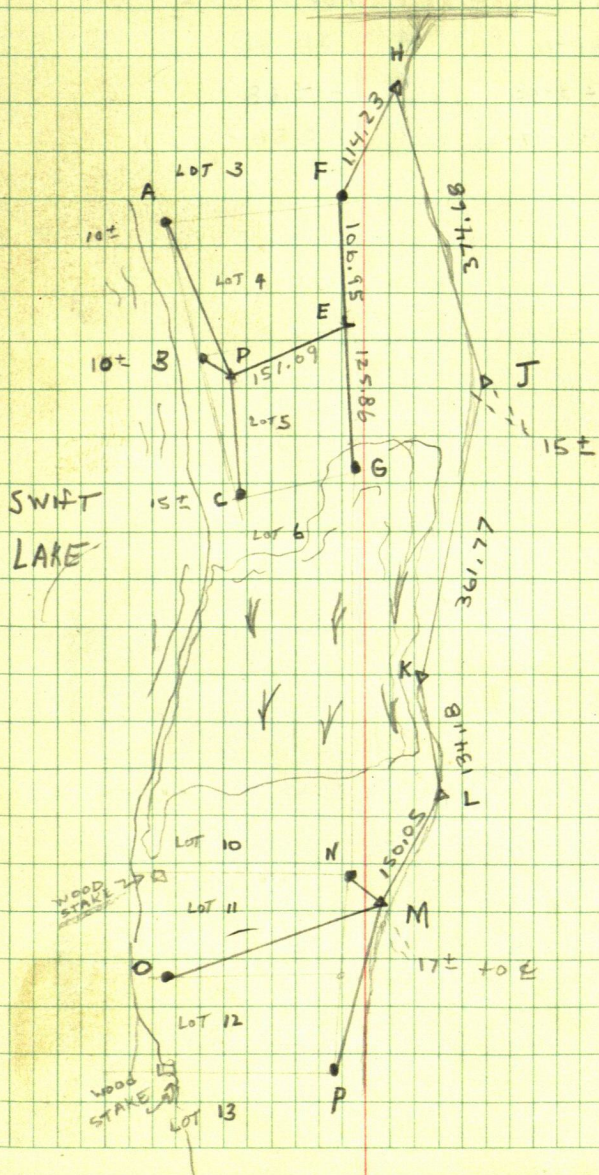 H
114.23
LOT 3
A
F
10±
374.68
106.95
LOT 4
E
10± B
P
151.09
J
125.86
15±
LOT 5
G
15± C
SWIFT
LAKE
LOT 6
361.77
K
134.18
L
150.05
LOT 10
N
WOOD
STAKE
LOT 11
M
O
17± TO ℄
LOT 12
WOOD
STAKE
P
LOT 13